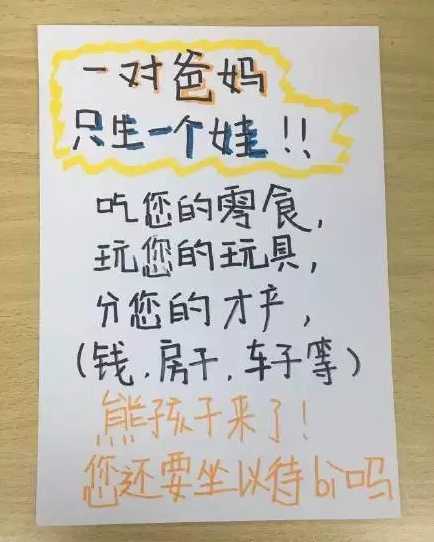 一对爸妈
只生一个娃!!
吃您的零食,
玩您的玩具,
分您的才产,
(钱.房子.车子等)
熊孩子来了!
您还要坐以待bì吗